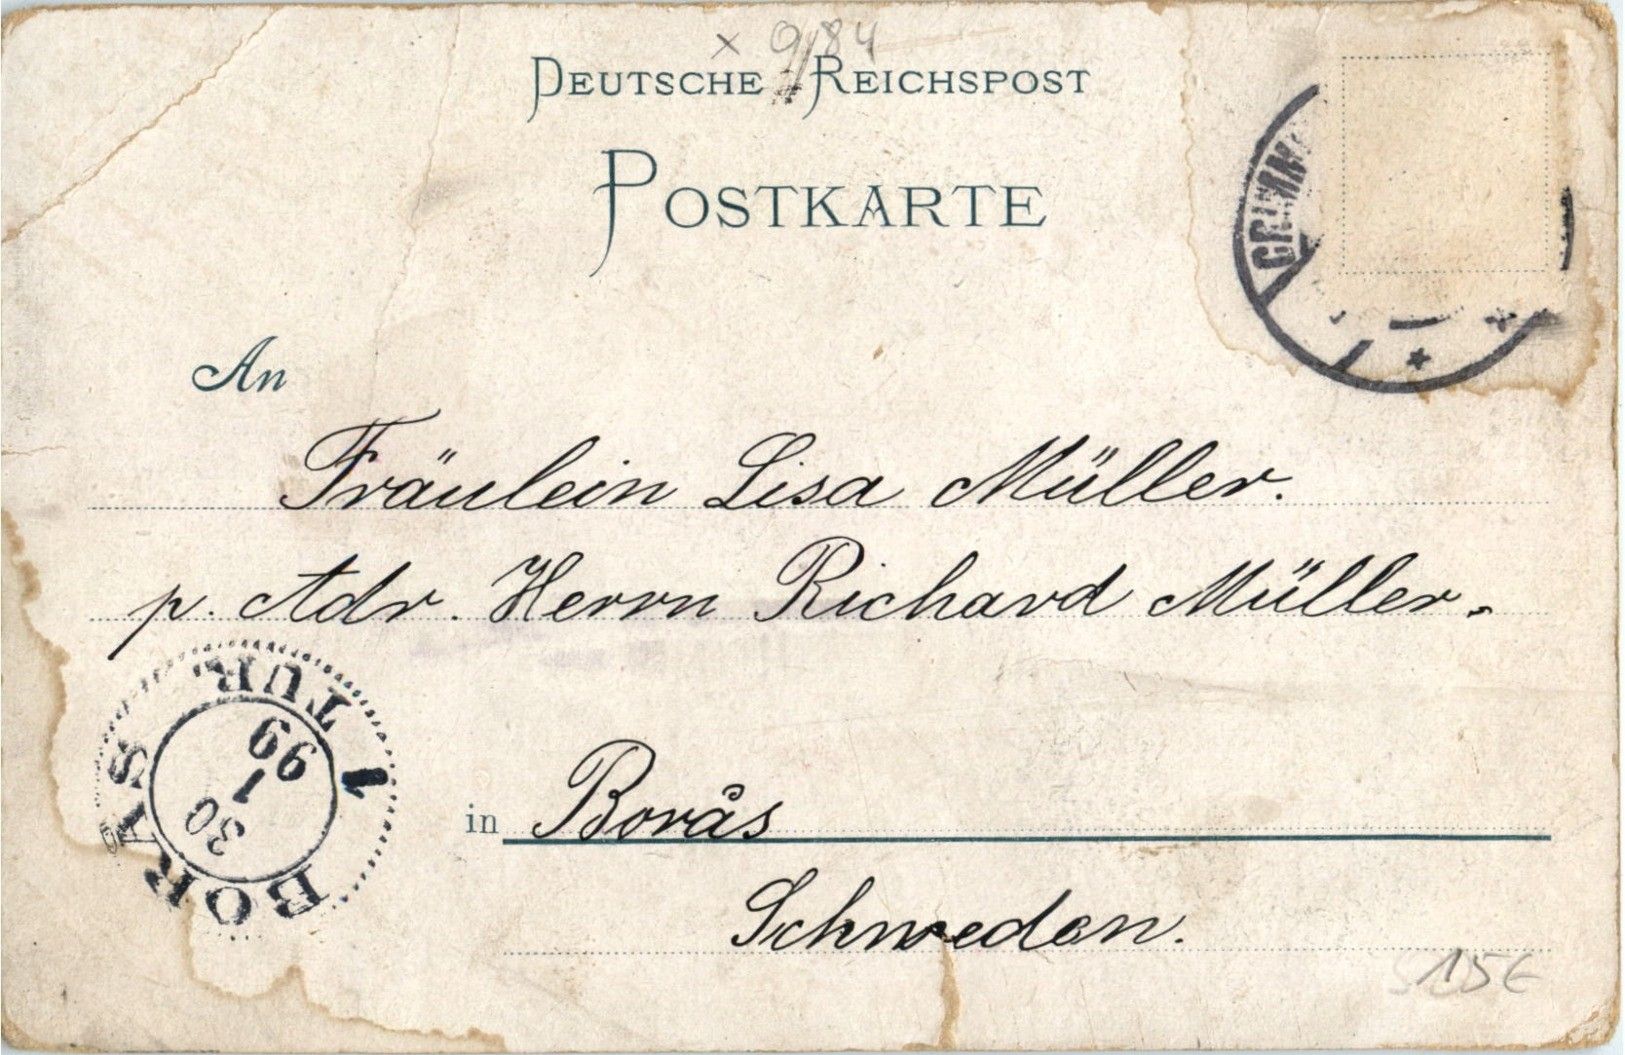 x 9/84
DEUTSCHE REICHSPOST
POSTKARTE
An
Fräulein Lisa Müller.
p. Adr. Herrn Richard Müller.
in Borås
Schweden.
BORÅS
1 TUR.
30
1
99
15€